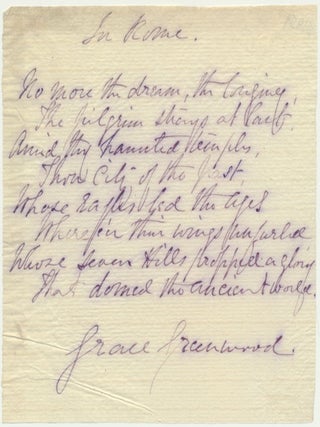 In Rome.
No more the dream, the longing,
The pilgrim stays at last,
Amid thy haunted temples,
Thou City of the past,
Whose Eagles led the ages
Where'er their wings unfurled
Whose seven Hills propped a glory
That domed the ancient world.
Grace Greenwood.